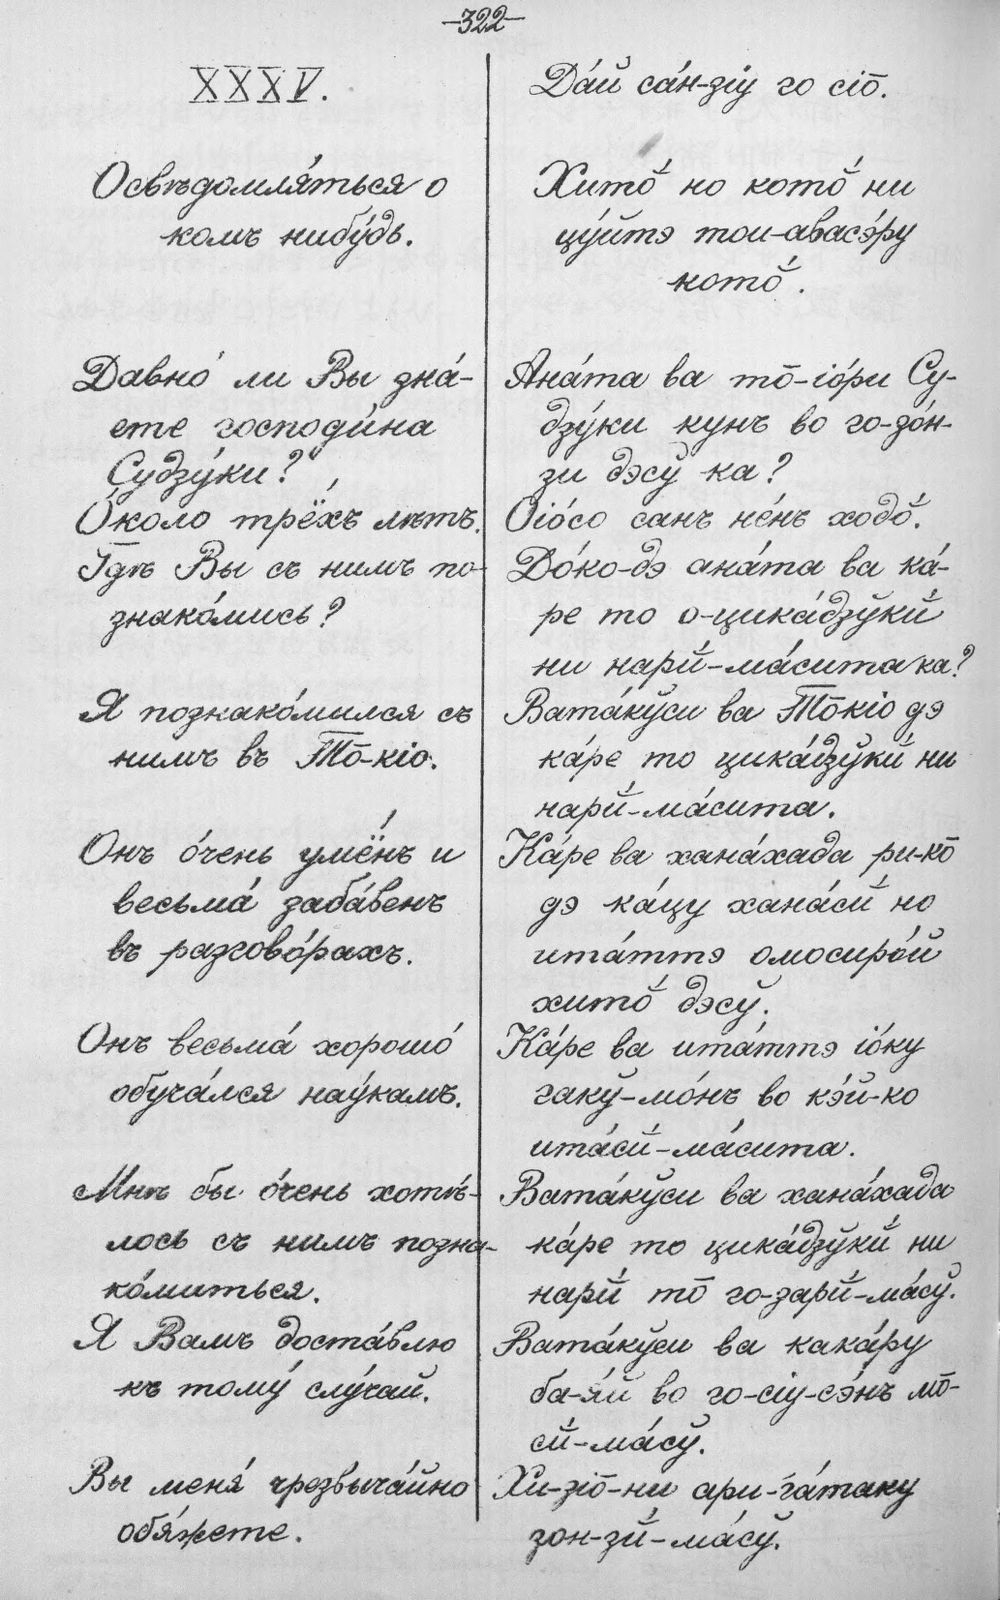 -322-
XXXV.
Освѣдомля́ться о
комъ нибу́дь.
Давно́ ли Вы зна́-
ете господи́на
Судзу́ки?
О́коло трёхъ лѣтъ.
Гдѣ Вы съ нимъ по-
знако́мись?
Я познако́мился съ
нимъ въ Тō-кіо.
Онъ о́чень умёнъ и
весьма́ заба́венъ
въ разгово́рахъ.
Онъ весьма́ хорошо́
обуча́лся нау́камъ.
Мнѣ бы о́чень хотѣ́-
лось съ нимъ позна-
ко́миться.
Я Вамъ доста́влю
къ тому́ слу́чай.
Вы меня́ чрезвыча́йно
обя́жете.
Да́й са́н-зіу го сіō.
Хито̆́ но кото̆́ ни
цу́йтэ тои-авасэ́ру
кото̆́.
Ана́та ва тō-іо́ри Су-
дзу́ки кунъ во го-зо́н-
зи дэсў ка?
Оіо́со санъ не́нъ ходо̆́.
До́ко-дэ ана́та ва ка́-
ре то о-цика́дзўкй
ни нарй-ма́сита ка?
Вата́кўси ва Тōкіо дэ
ка́ре то цика́дзўкй ни
нарй-ма́сита.
Ка́ре ва хана́хада ри-кō
дэ ка́цу хана́сй но
ита́ттэ омосиро́й
хито̆́ дэсў.
Ка́ре ва ита́ттэ іо́ку
гаку-мо́нъ во кэ́й-ко
ита́сй-ма́сита.
Вата́кўси ва хана́хада
ка́ре то цика́дзўкй ни
нарй тō го-зарй-ма́сў.
Вата́кўси ва кака́ру
ба-я́й во го-сіу-сэ́нъ мō-
сй-ма́сў.
Хи-зіō-ни ари-га́таку
зон-зй-ма́сў.